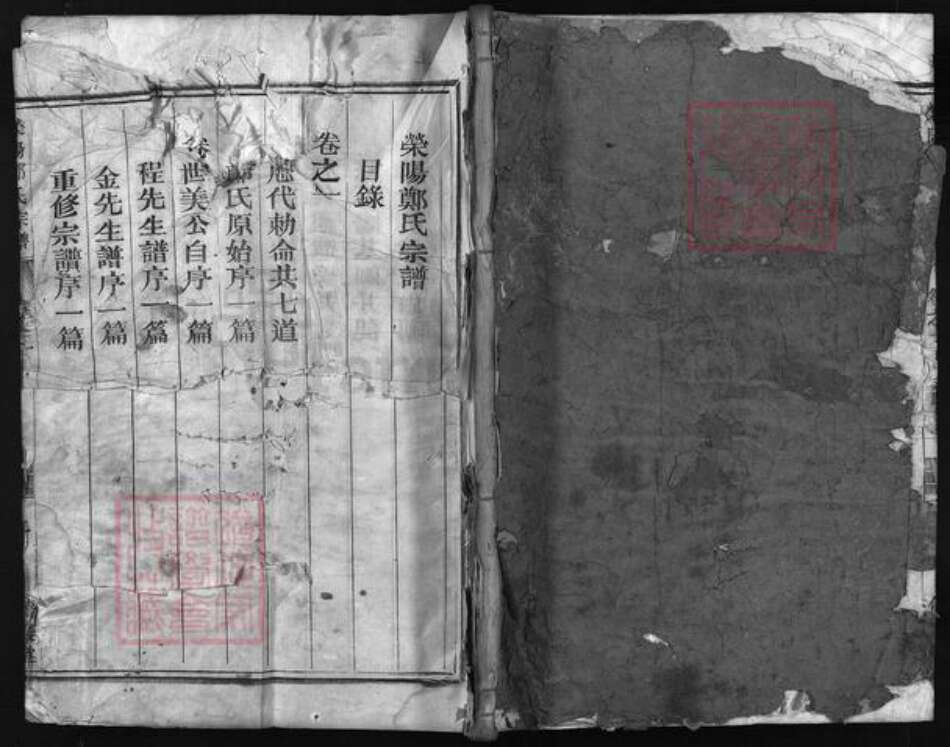 榮陽鄭氏宗譜
目錄
卷之一
歷代勅命共七道
鄭氏原始序一篇
世美公自序一篇
程先生譜序一篇
金先生譜序一篇
重修宗譜序一篇